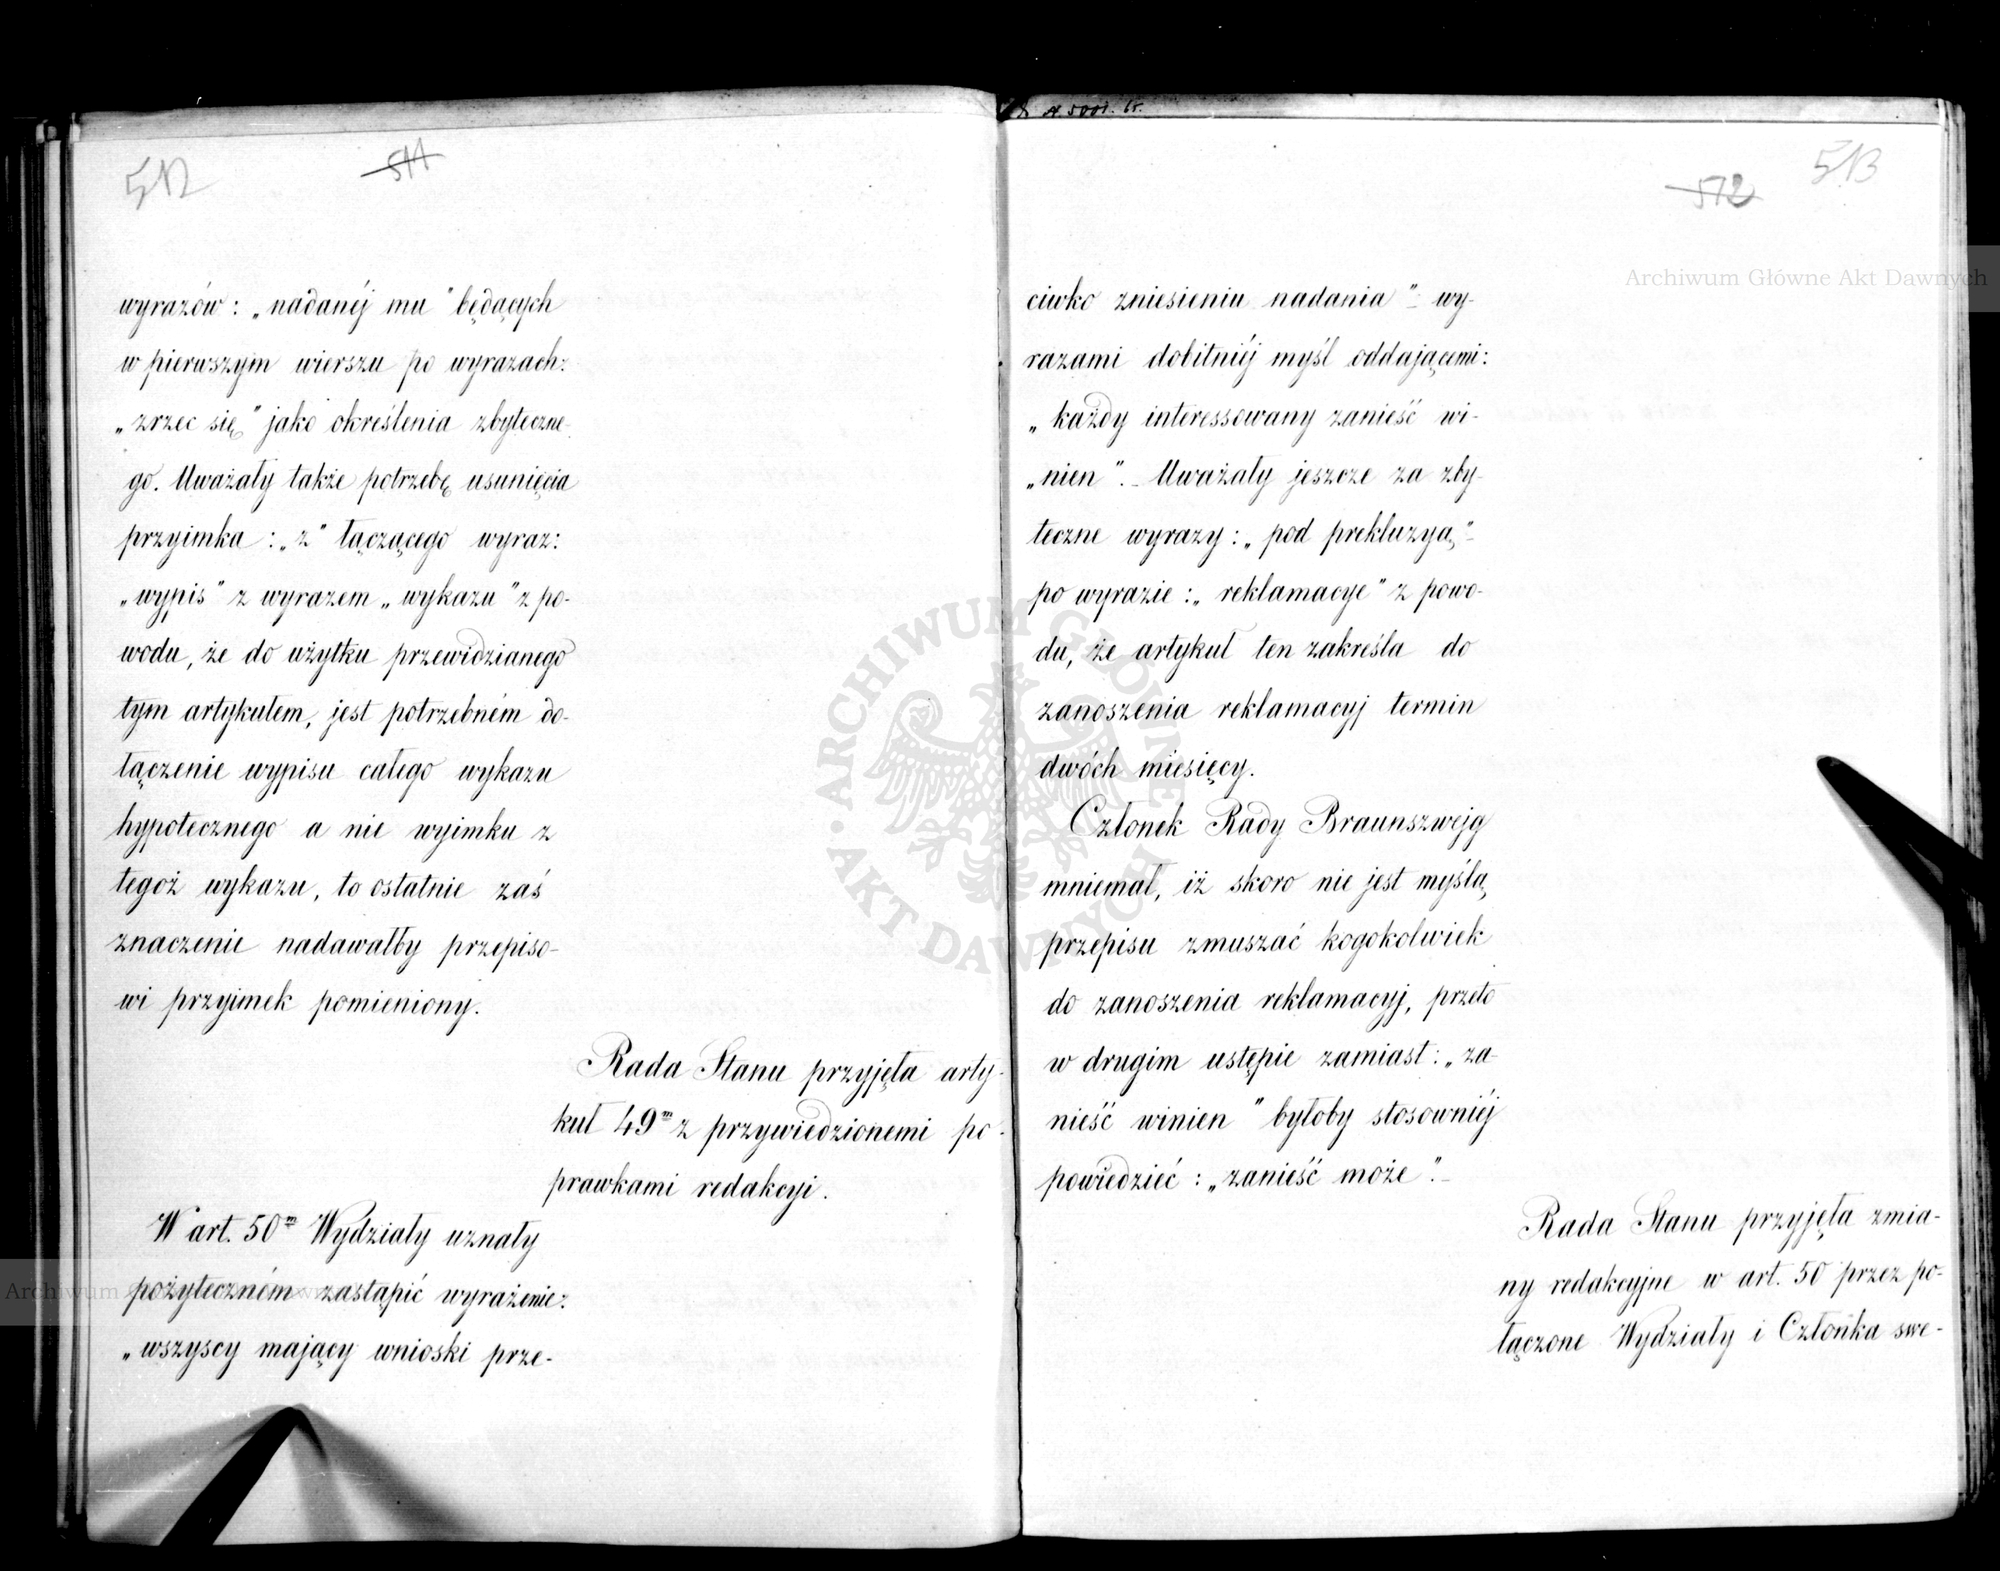 512
511
wyrazów: „nadanéj mu” będących
w pierwszym wierszu po wyrazach:
„zrzec się” jako określenia zbyteczne-
go. Uważały także potrzebę usunięcia
przyimka: „z” łączącego wyraz:
„wypis” z wyrazem „wykazu” z po-
wodu, że do użytku przewidzianego
tym artykułem, jest potrzebném do-
łączenie wypisu całego wykazu
hypotecznego a nie wyimku z
tegoż wykazu, to ostatnie zaś
znaczenie nadawałby przepiso-
wi przyimek pomieniony.
Rada Stanu przyjęła arty-
kuł 49m z przywiedzionemi po-
prawkami redakcyi.
W art. 50m Wydziały uznały
pożyteczném zastąpić wyrażenie:
„wszyscy mający wnioski prze-
512
513
ciwko zniesieniu nadania” wy-
razami dobitniéj myśl oddającemi:
„każdy interessowany zanieść wi-
„nien”. Uważały jeszcze za zby-
teczne wyrazy: „pod prekluzyą”
po wyrazie: „reklamacye” z powo-
du, że artykuł ten zakreśla do
zanoszenia reklamacyj termin
dwóch miesięcy.
Członek Rady Braunszwejg
mniemał, iż skoro nie jest myślą,
przepisu zmuszać kogokolwiek
do zanoszenia reklamacyj, przeto
w drugim ustępie zamiast: „za-
nieść winien” byłoby stosowniéj
powiedzieć: „zanieść może”.
Rada Stanu przyjęła zmia-
ny redakcyjne w art. 50 przez po-
łączone Wydziały i Członka swe-
Archiwum Główne Akt Dawnych
ARCHIWUM GŁÓWNE
AKT DAWNYCH